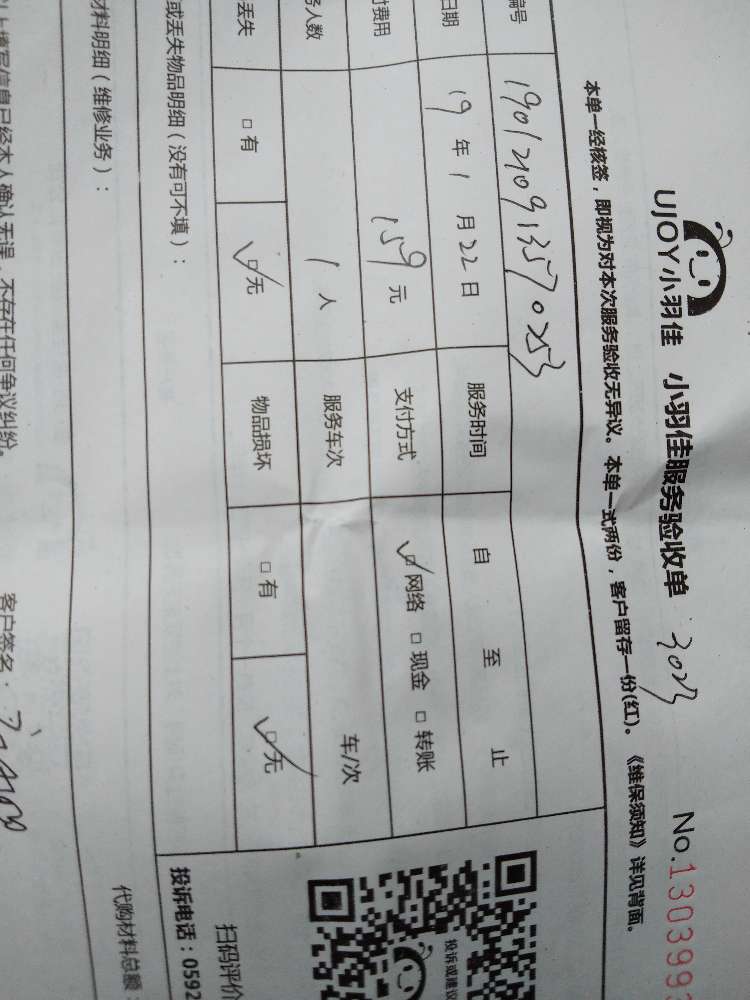 UJOY小羽佳 小羽佳服务验收单 3023 No.130399
本单一经核签，即视为对本次服务验收无异议。本单一式两份，客户留存一份(红)。《维保须知》详见背面。
编号 1901210913570253
日期 19年1月22日 服务时间 自 至 止
付费用 159元 支付方式 ☑网络 □现金 □转账
务人数 1人 服务车次 车/次
丢失 □有 ☑无 物品损坏 □有 ☑无
或丢失物品明细（没有可不填）：
投诉或建议
扫码评价
投诉电话：0592
材料明细（维修业务）：
代购材料总额：
以上填写信息已经本人确认无误，不存在任何争议纠纷。
客户签名：